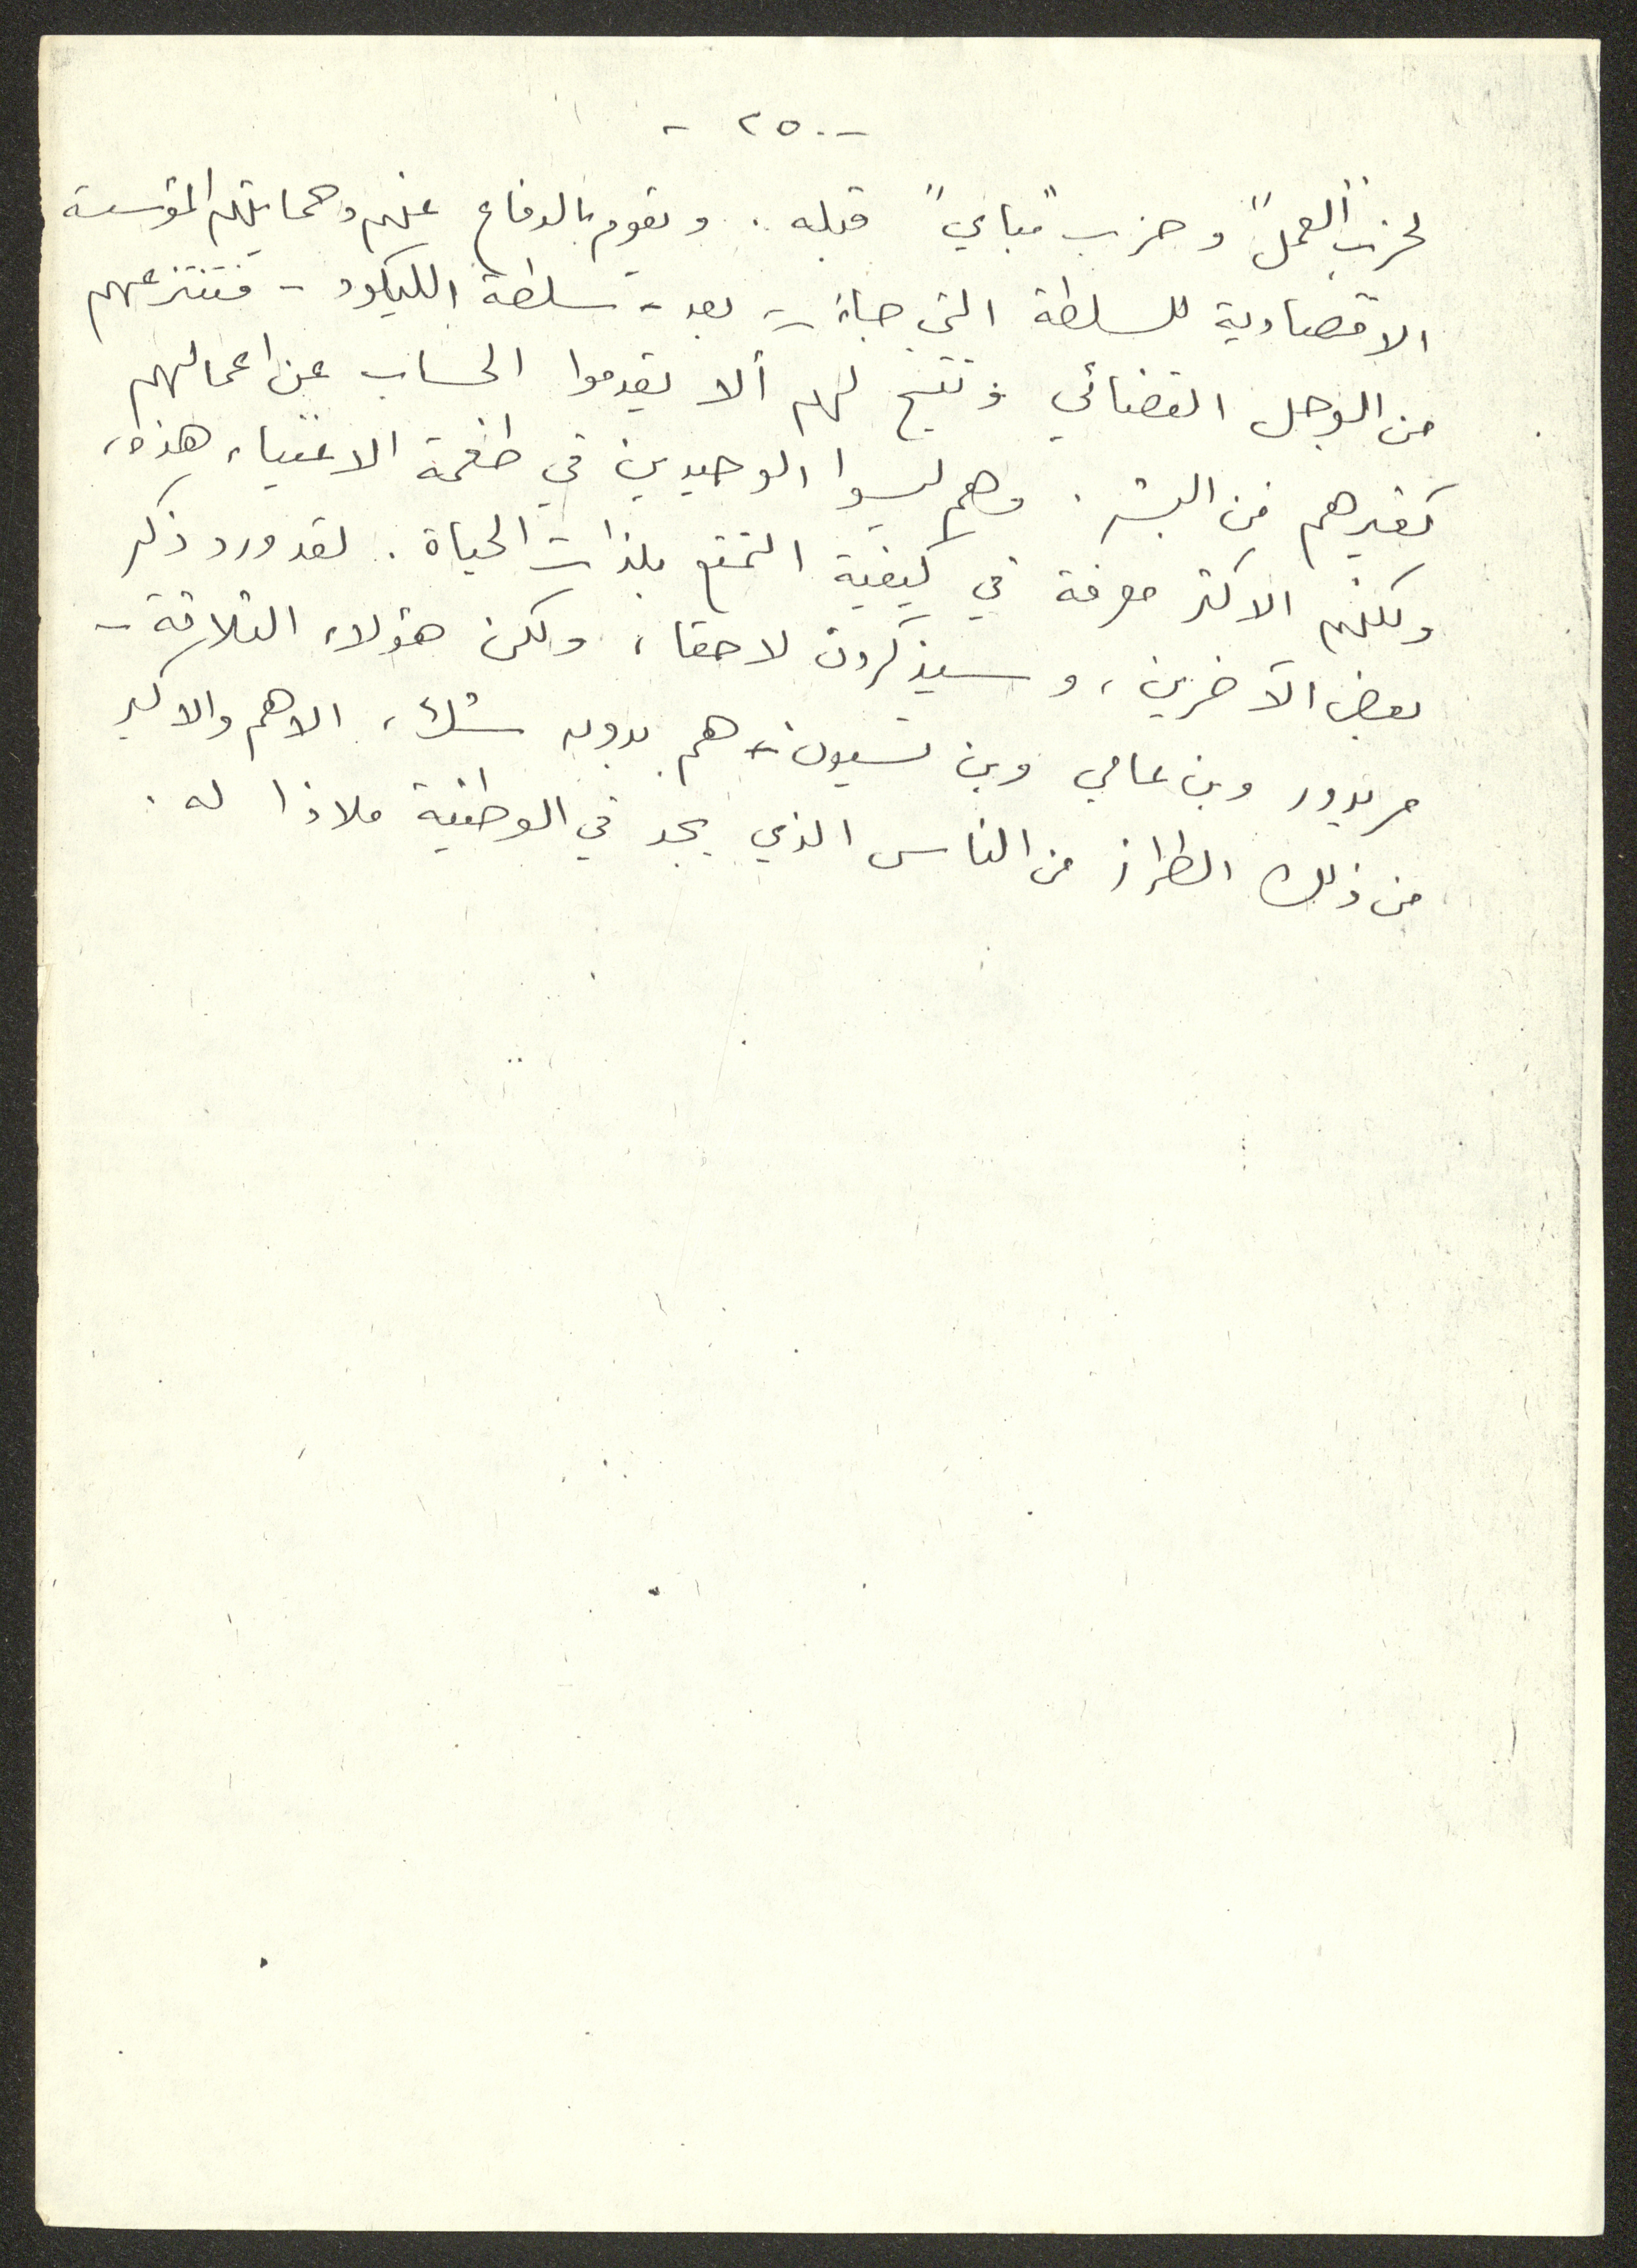 - ٢٥٠ -
لحزب "العمل" وحزب "مباي" قبله. وتقوم بالدفاع عنهم وحمايتهم المؤسسة
الاقتصادية للسلطة التي جاءت بعد - سلطة الليكود - فتنتزعهم
من الوحل القضائي وتتيح لهم ألا يقدموا الحساب عن اعمالهم
كغيرهم من البشر. وهم ليسوا الوحيدين في طغمة الاغنياء هذه،
ولكنهم الاكثر معرفة في كيفية التمتع بلذات الحياة. لقد ورد ذكر
بعض الآخرين، وسيذكرون لاحقا، ولكن هؤلاء الثلاثة -
مريدور وبن عامي وبن تسيون - هم بدون شك، الاهم والاكبر
من ذلك الطراز من الناس الذي يجد في الوطنية ملاذا له.